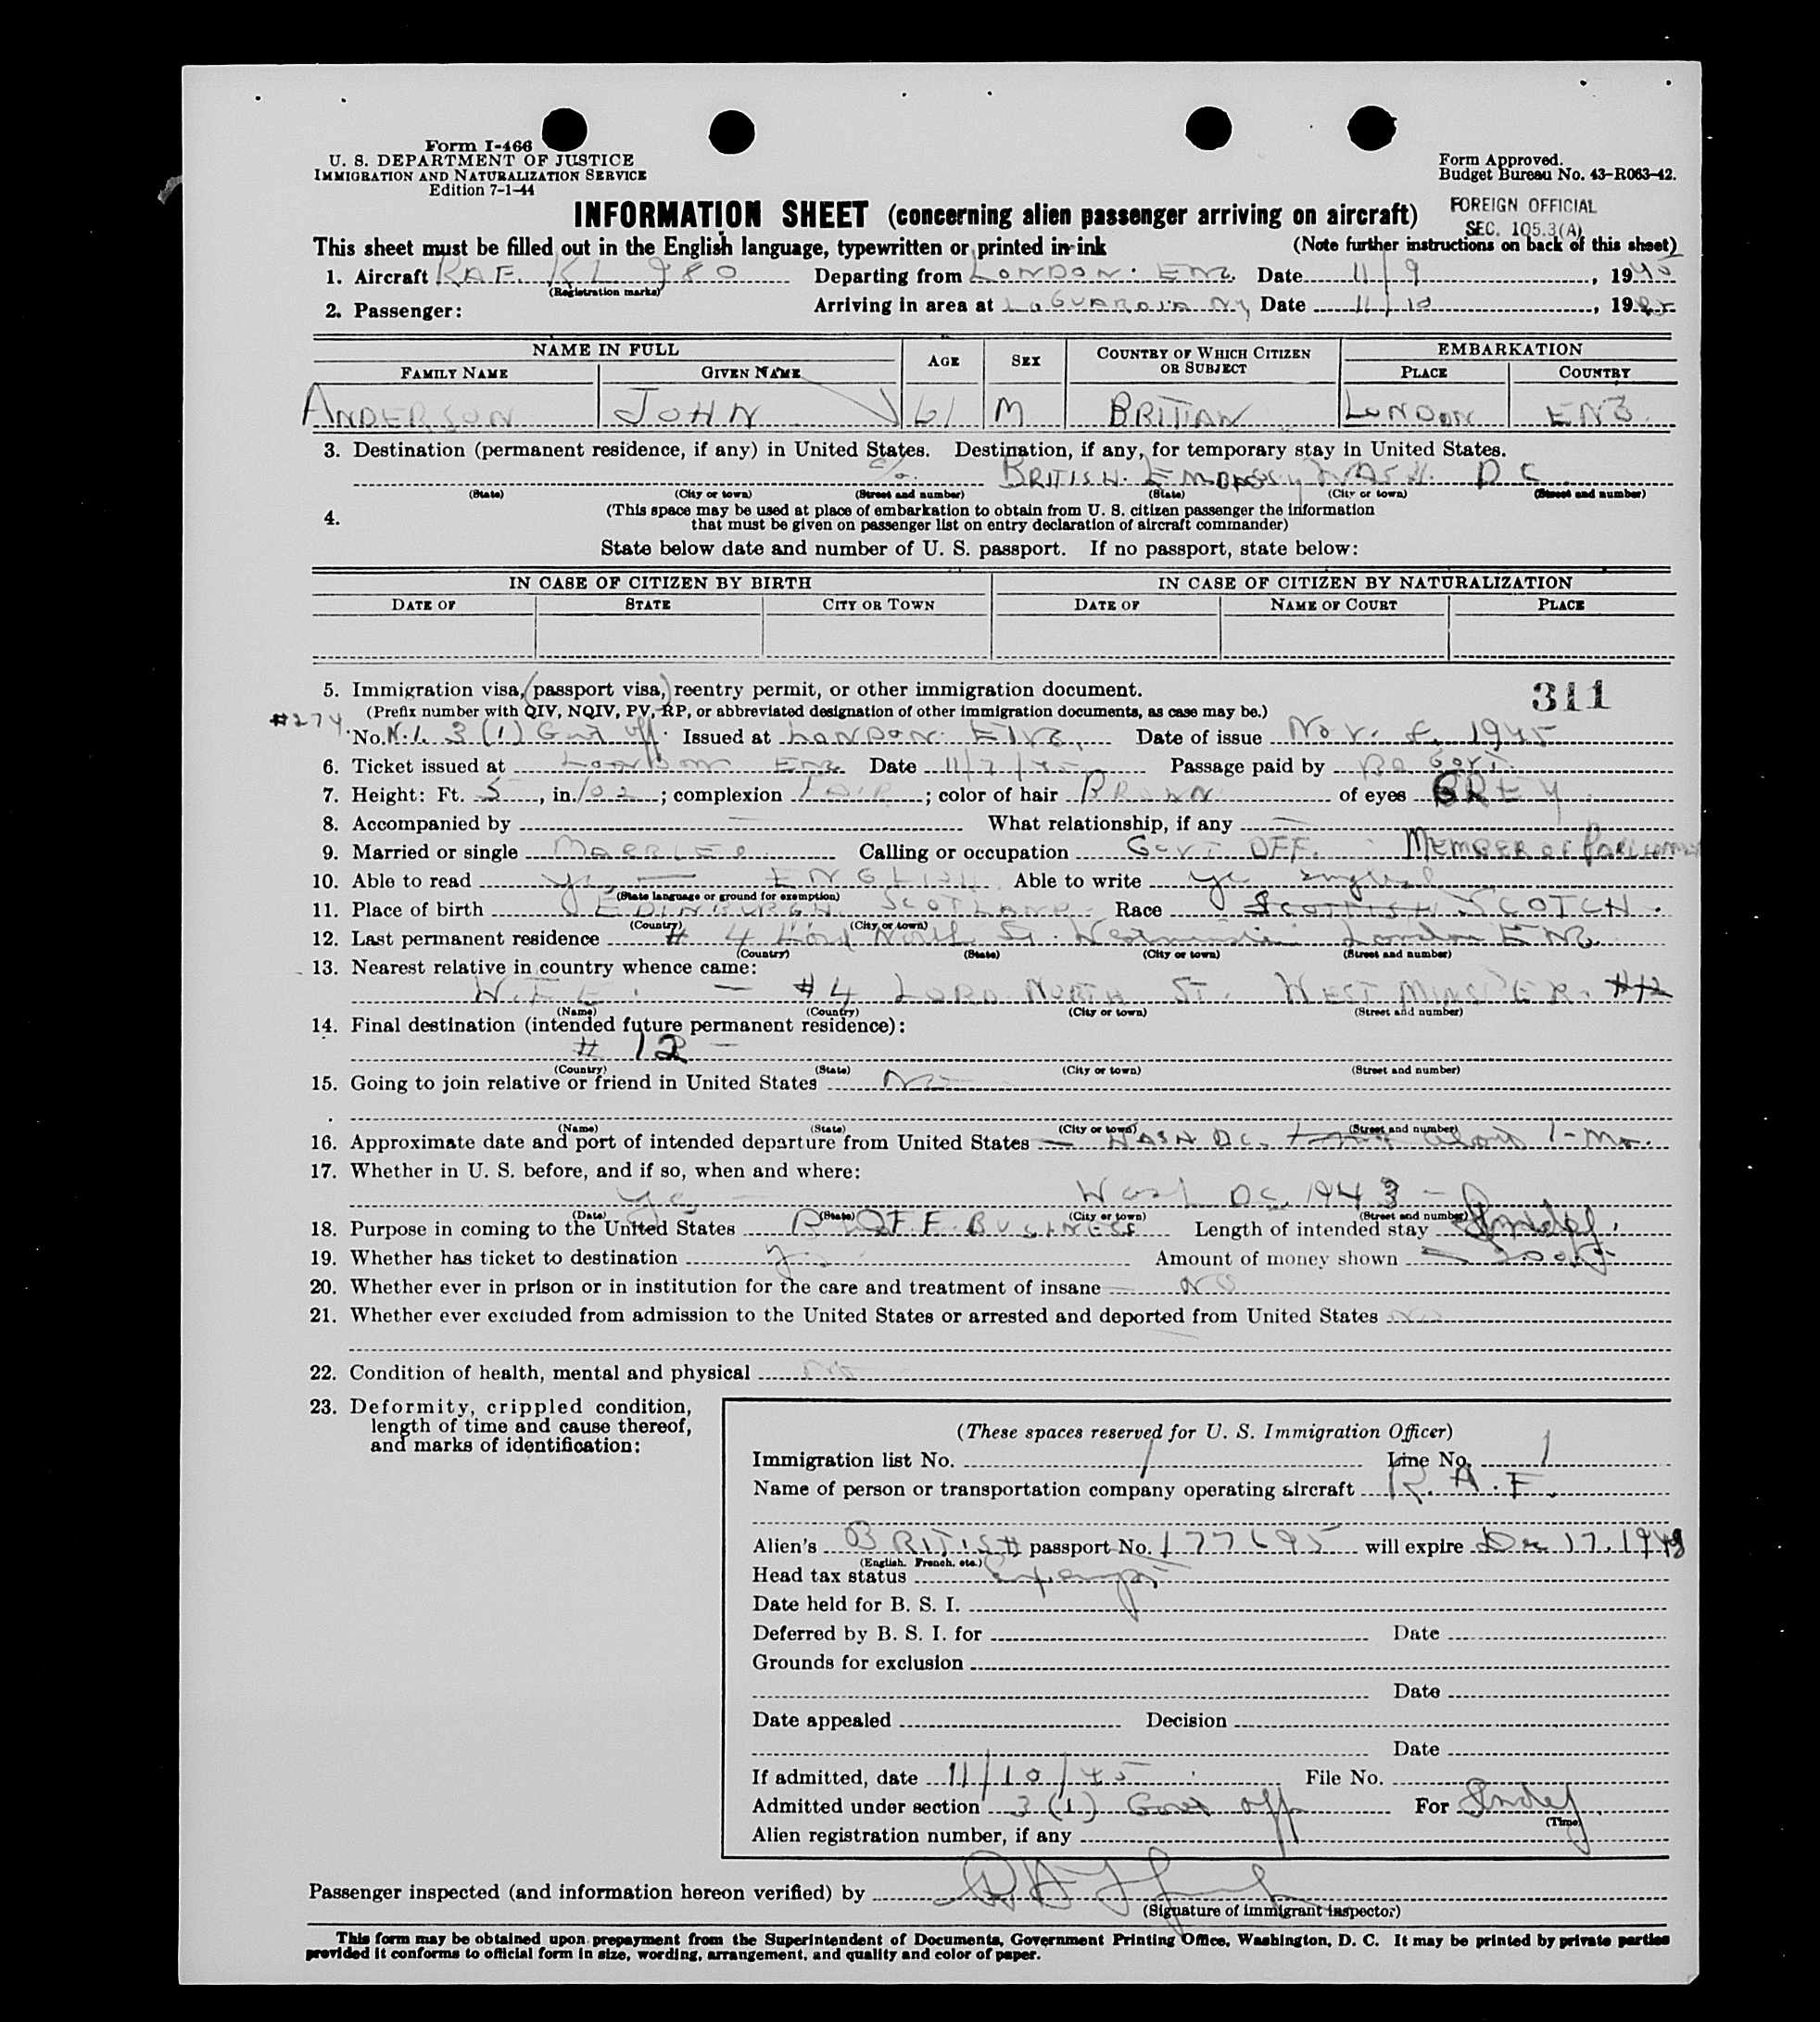 Form I-466
U. S. DEPARTMENT OF JUSTICE
IMMIGRATION AND NATURALIZATION SERVICE
Edition 7-1-44
Form Approved.
Budget Bureau No. 43-R063-42.
INFORMATION SHEET (concerning alien passenger arriving on aircraft)
FOREIGN OFFICIAL
SEC. 105.3(A)
This sheet must be filled out in the English language, typewritten or printed in ink (Note further instructions on back of this sheet)
1. Aircraft RAF. KL 980 Departing from LONDON. ENG. Date 11/9, 1945
(Registration marks)
2. Passenger: Arriving in area at LAGUARDIA NY Date 11/10, 1945
NAME IN FULL AGE SEX COUNTRY OF WHICH CITIZEN OR SUBJECT EMBARKATION
FAMILY NAME GIVEN NAME PLACE COUNTRY
ANDERSON JOHN 61 M BRITIAN LONDON ENG.
3. Destination (permanent residence, if any) in United States. Destination, if any, for temporary stay in United States.
c/o BRITISH. EMBASSY WASH. D C
(State) (City or town) (Street and number) (State) (City or town) (Street and number)
4. (This space may be used at place of embarkation to obtain from U. S. citizen passenger the information
that must be given on passenger list on entry declaration of aircraft commander)
State below date and number of U. S. passport. If no passport, state below:
IN CASE OF CITIZEN BY BIRTH IN CASE OF CITIZEN BY NATURALIZATION
DATE OF STATE CITY OR TOWN DATE OF NAME OF COURT PLACE
5. Immigration visa, (passport visa,) reentry permit, or other immigration document. 311
(Prefix number with QIV, NQIV, PV, RP, or abbreviated designation of other immigration documents, as case may be.)
#274 No. 3 (1) Govt off. Issued at LONDON. ENG. Date of issue Nov. 1945
6. Ticket issued at London Eng. Date 11/7/45 Passage paid by Govt.
7. Height: Ft. 5, in. 10 2; complexion FAIR; color of hair BROWN of eyes GREY
8. Accompanied by — What relationship, if any —
9. Married or single MARRIED Calling or occupation GOVT OFF. MEMBER OF PARLIAMENT
10. Able to read yes — ENGLISH Able to write yes english
(State language or ground for exemption)
11. Place of birth EDINBURGH. SCOTLAND. Race SCOTTISH SCOTCH.
(Country) (City or town)
12. Last permanent residence # 4 Lord North St. Westminster London ENG.
(Country) (State) (City or town) (Street and number)
13. Nearest relative in country whence came:
WIFE. — #4 LORD NORTH ST. WEST MINSTER. #12
(Name) (Country) (City or town) (Street and number)
14. Final destination (intended future permanent residence):
# 12 —
(Country) (State) (City or town) (Street and number)
15. Going to join relative or friend in United States No
(Name) (State) (City or town) (Street and number)
16. Approximate date and port of intended departure from United States — WASH DC. about 1-Mo.
17. Whether in U. S. before, and if so, when and where:
Yes — Wash DC. 1943 —
(Date) (State) (City or town) (Street and number)
18. Purpose in coming to the United States OFF. BUSINESS Length of intended stay Indef.
19. Whether has ticket to destination Amount of money shown
20. Whether ever in prison or in institution for the care and treatment of insane — NO
21. Whether ever excluded from admission to the United States or arrested and deported from United States No
22. Condition of health, mental and physical
23. Deformity, crippled condition,
length of time and cause thereof,
and marks of identification:
(These spaces reserved for U. S. Immigration Officer)
Immigration list No. 1 Line No. 1
Name of person or transportation company operating aircraft R.A.F.
Alien's BRITISH passport No. 177695 will expire Dec 17, 1948
(English. French. etc.)
Head tax status exempt
Date held for B. S. I.
Deferred by B. S. I. for Date
Grounds for exclusion
Date
Date appealed Decision
Date
If admitted, date 11/10/45 File No.
Admitted under section 3 (1) Govt off For Indef
(Time)
Alien registration number, if any
Passenger inspected (and information hereon verified) by
(Signature of immigrant inspector)
This form may be obtained upon prepayment from the Superintendent of Documents, Government Printing Office, Washington, D. C. It may be printed by private parties
provided it conforms to official form in size, wording, arrangement, and quality and color of paper.